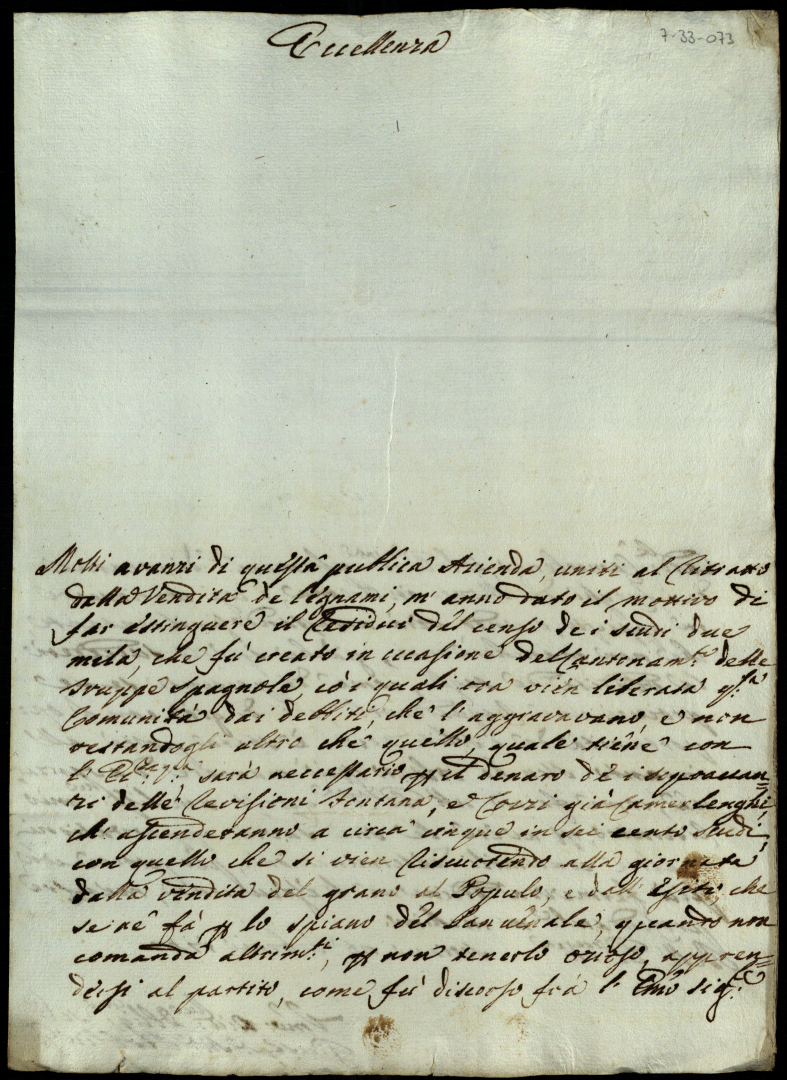 Eccellenza
7-33-073
Molti avanzi di questa publica Azienda, uniti al Ritratto
dalla Vendita de legnami, m' anno dato il mottivo di
far estinguere il Residui del censo dei scudi due
mila, che fù creato in occasione del Cantonam.to delle
Truppe Spagnole, cò i quali ora vien liberata q.sta
Comunità dai debbiti, che l' aggravavano, e non
restandogli altro che quello, quale tiene con
l' sarà neccessario, che il denaro de i sopraavan=
zi delle Revisioni Fontana, e Corzi già Camerlenghi,
ch' ascenderanno a circa cinque in sei cento scudi,
con quello che si vien riscuotendo alla giornata
dalla vendita del grano al Populo, e dall' Esito, che
se ne fà p lo spiano del Panvenale, quando non
comanda altrim.ti, p non tenerlo ozioso, appren=
desi al partito, come fù discorso frà l' Emo Sig.re